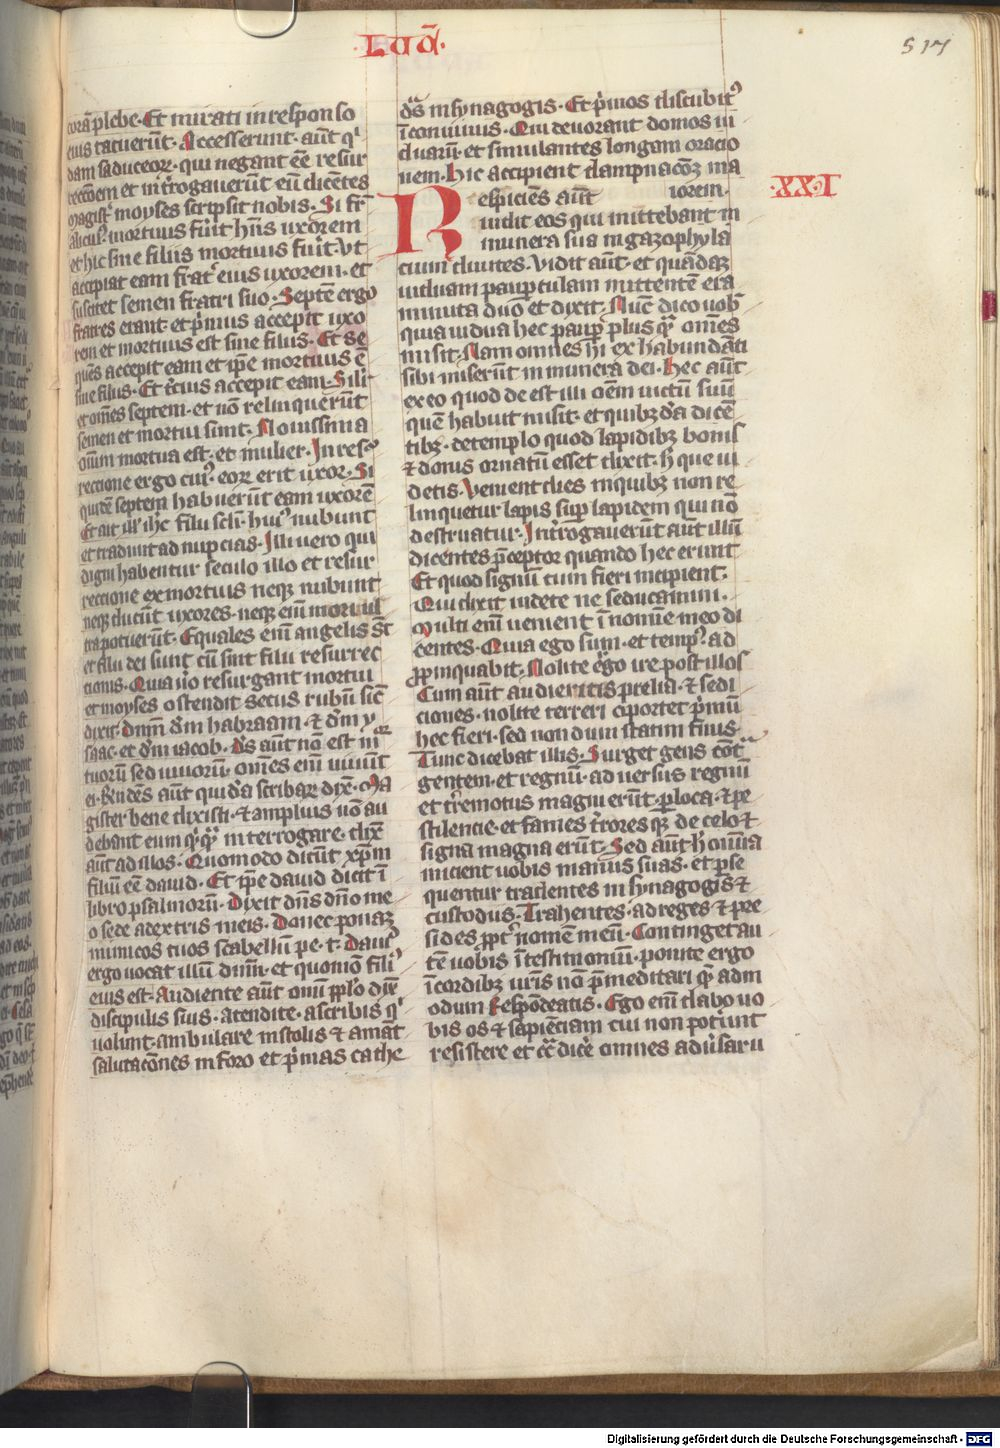 LUCA
517
corā plebe. Et mirati in responso
eius tacuerūt. Accesserunt. aūt qi
dam saduceoꝝ. qui negant eē resur
reccōem et int̄rogauerūt eū dicētes
magist̄ moyses scripsit nobis. Si fr̄
alicuiꝰ mortuus fūit hn̄s uxorem
et hic sine filiis mortuus fūit. Vt
accipiat eam frat̄ eius uxorem. et
suscitet semen fratri suo. Septē ergo
fratres erant. et p̄mus accepit uxo
rem et mortuus est sine filiis. Et se
quēs accepit eam et ip̄e mortuus ē
sine filiis. Et t̄cius accepit eam. Silit̄
et om̄es septem. et nō relinquerūt
semen et mortui sunt. Nouissima
om̄iū mortua est. et mulier. In res
reccione ergo cuiꝰ eoꝝ erit uxor. Si
quidē septem habuerūt eam uxorē
Et ait ill ihc filii sclī huiꝰ nubunt
et tradunt ad nupcias. Illi uero qui
digni habentur seculo illo et resur
reccione ex mortuis neqꝫ nubunt
neqꝫ ducūt uxores. neqꝫ eni mori ul
tra poterūt. Equales enī angelis sūt
et filii dei sunt cū sint filii resurrec
cionis. Quia ūo resurgant mortui
et moyses ostendit secus rubū sic̄
dixit. dn̄m dm̄ habraam. ⁊ dm̄ y
saac. et dm̄ iacob. Ds aūt nō est m
tuorū sed uiuorū. om̄es enī uiuūt
ei. Rn̄dēs aūt quidā scribaꝝ dix̄. Ma
gister bene dixisti. ⁊ amplius nō au
debant eum qiꝙ interrogare. dix̄
aūt ad illos. Quomodo dicūt xp̄m
filiū eē dauid. Et ip̄e dauid dicit ī
libro psalmorū. Dixit dn̄s dn̄o me
o sede a dextris meis. Donec ponaꝫ
inimicos tuos scabellū pe. t. Dauid
ergo uocat illū dn̄m. et quomō filiꝰ
eius est. Audiente aūt om̄i pplo dix̄
discipulis suis. atendite. a scribis qi
uolunt. ambulare in stolis ⁊ amāt
salutacōnes in foro et p̄mas cathe
drās in synagogis. Et p̄mos discubitꝰ
ī conuiuiis. Qui deuorant domos ui
duarū. et simulantes longam oracio
nem. Hic accipient dampnacōeꝫ ma
iorem.
XXI
Respiciēs aūt
uidit eos qui mittebant in
munera sua in gazophyla
cium diuites. Vidit aūt. et quādaꝫ
uiduam pauꝑculam mittentē era
minuta duo et dixit. Nūc dico uob
quia uidua hec pauꝑ plus qͣ om̄es
misit. Nam omnes hi ex habundāti
sibi miserūt in munera dei. Hec aūt
ex eo quod de est illi oēm uictū suū
quē habuit misit. et quibꝫdā dicē
tibꝫ. de templo quod lapidibꝫ bonis
⁊ donis ornatū esset dixit. h que ui
detis. Venient dies in quibꝫ non re
linquetur lapis suꝑ lapidem qui nō
destruatur. Int̄rogauerūt aūt illū
dicentes p̄ceptor quando hec erunt
Et quod signū cum fieri incipient.
Qui dixit uidete ne seducamini.
Multi enī uenient ī nomīe meo di
centes. Quia ego sum. et tempꝰ. ad
ꝓpinquabit. Nolite ergo ire post illos
Cum aūt audieritis prelia. ⁊ sedi
ciones. nolite terreri oportet p̄mū
hec fieri. sed nondum statim finis.
Tunc dicebat illis. Surget gens cōt̄
gentem. et regnū. aduersus regnū
et t̄remotus magni erūt. ꝑ loca. ⁊ pe
stilencie. et fames t̄rores qꝫ de celo ⁊
signa magna erūt. Sed aūt h omnia
inicient uobis manus suas. et ꝑse
quentur tradentes in synagogis ⁊
custodiis. Trahentes. ad reges ⁊ pre
sides ꝓpt̄ nomē meū. Continget au
tē uobis ī testimoniū. ponite ergo
ī cordibꝫ ur̄is nō p̄meditari qͣ adm
odum respōdeatis. Ego enī dabo uo
bis os ⁊ sapiēciam cui non potūnt
resistere et cͣdice omnes adūsarii
Digitalisierung gefördert durch die Deutsche Forschungsgemeinschaft - DFG